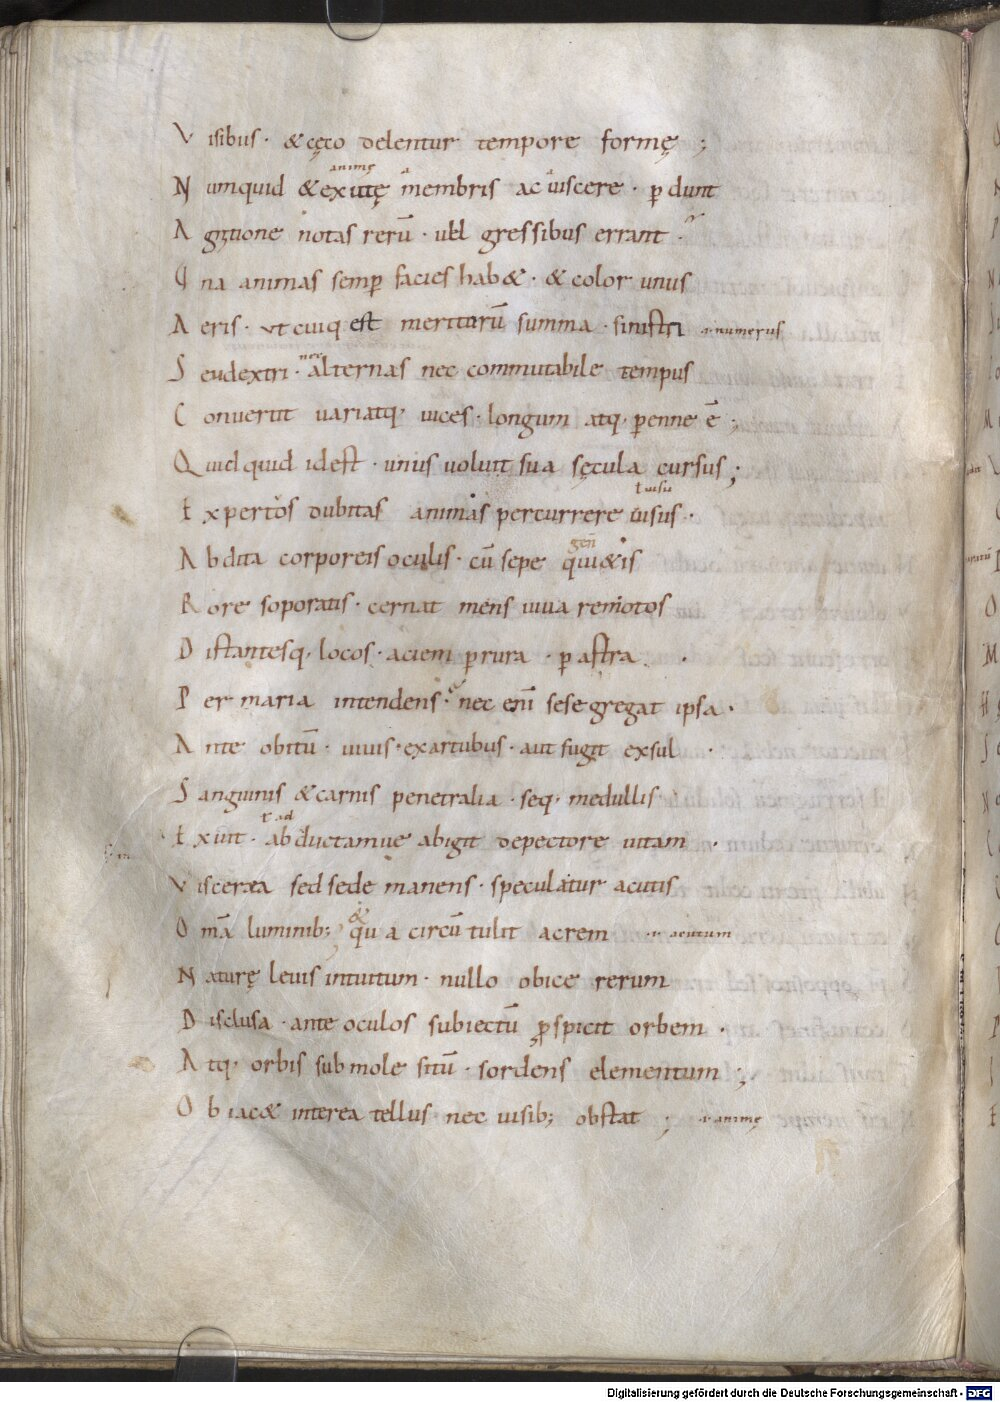 V isibus · & cęco delentur tempore formę ;
animę
N umquid & exutę membris ac uiscere · p̲ dunt
A gnitione notas rerū · uel gressibus errant ·
V na animas semp̲ facies hab& · & color unus
A eris · ut cuiq est meritorū summa · sinistri · numerus
S eu dextri · nec alternas nec commutabile tempus
C onuertit uariatq · uices · longum atq · p̲enne ē ;
Q uid quid id est · unus uoluit sua sęcula cursus ;
ł uisu
E xpertos dubitas animas percurrere uisus ·
gen̄
A bdita corporeis oculis · cū sepe qui&is
R ore soporatis · cernat mens uiua remotos
D istantesq · locos · aciem p̲ rura · p̲ astra ·
P er maria intendens · nec eni sese gregat ipsa ·
A nte obitū · uiuis · ex artubus · aut fugit exsul ·
S anguinis & carnis penetralia · seq · medullis
ł ad
E xuit · ab ductamue abigit de pectore uitam ·
V iscerea sed sede manens · speculatur acutis
O mā luminib; qu a circū tulit acrem acutum
N aturę leuis intuitum · nullo obice rerum
D isclusa · ante oculos subiectū p̲spicit orbem ·
A tq · orbis sub mole sitū · sordens elementum ;
O b iac& interea tellus nec uisib; obstat ; animę
Digitalisierung gefördert durch die Deutsche Forschungsgemeinschaft - DFG